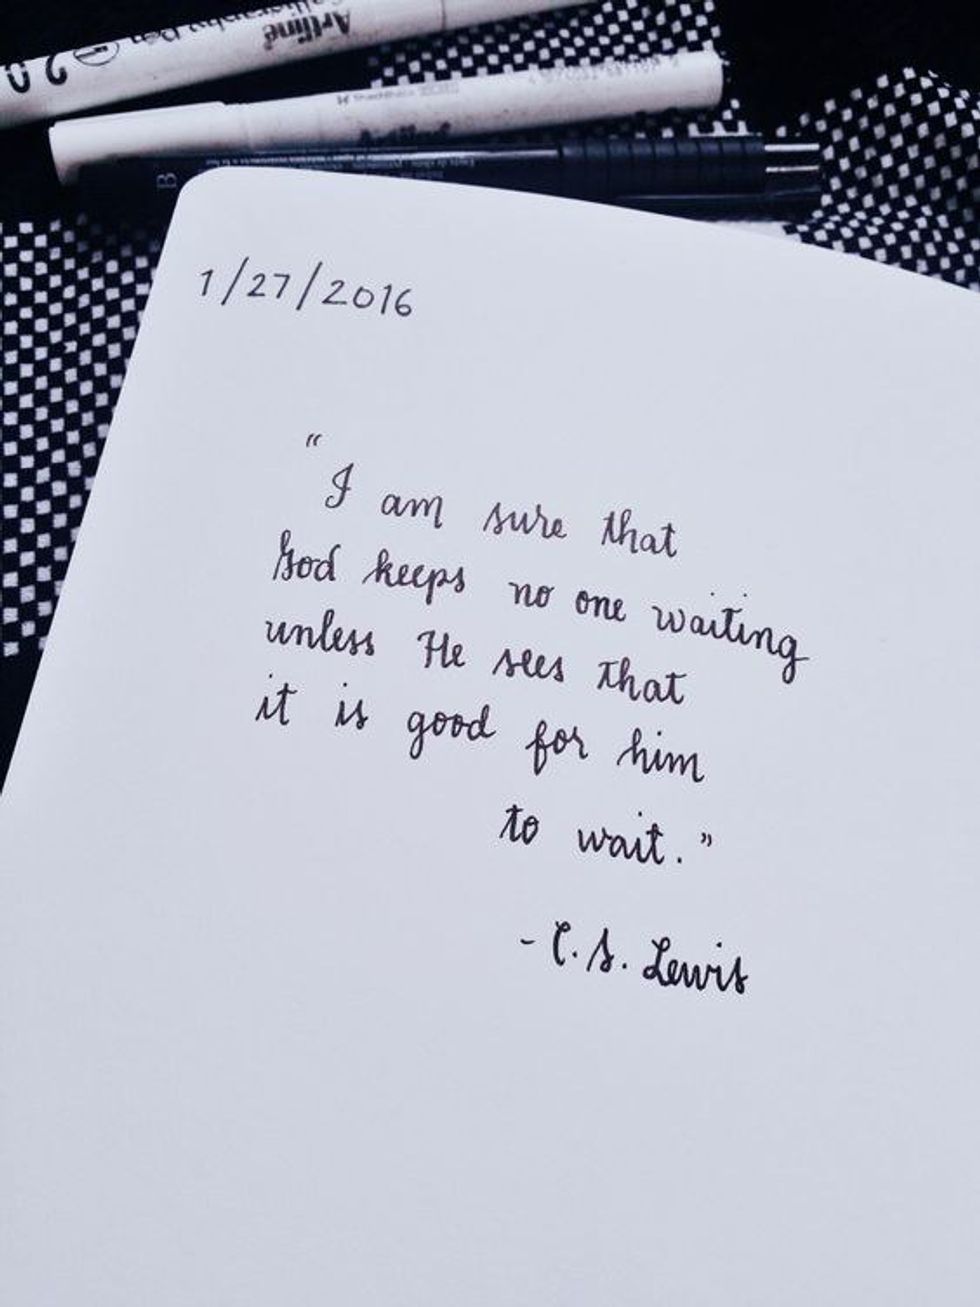 Calligraphy Pen 2.0
Artline
B
1/27/2016
"
I am sure that
God keeps no one waiting
unless He sees that
it is good for him
to wait."
- C. S. Lewis